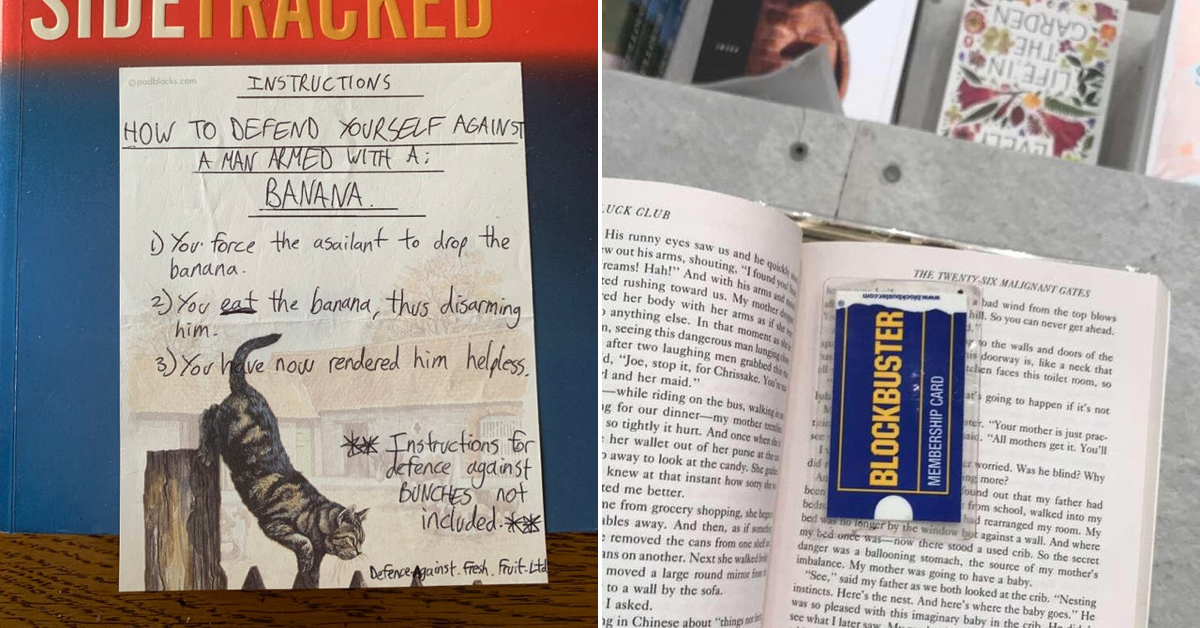 SIDETRACKED
© padblocks.com
INSTRUCTIONS
HOW TO DEFEND YOURSELF AGAINST
A MAN ARMED WITH A:
BANANA.
1) You force the asailant to drop the
banana.
2) You eat the banana, thus disarming
him.
3) You have now rendered him helpless.
** Instructions for
defence against
BUNCHES not
included.**
Defence.Against.Fresh.Fruit.Ltd
LIFE IN
THE
GARDEN
LUCK CLUB
His runny eyes saw us and he quickly
out his arms, shouting, "I found you
Hah!" And with his arms and
rushing toward us. My mother
her body with her arms as if she
anything else. In that moment as
seeing this dangerous man lunging
after two laughing men grabbed this
"Joe, stop it, for Chrissake. You're
and her maid."
—while riding on the bus, walking
for our dinner—my mother
so tightly it hurt. And once when she
her wallet out of her purse at the
away to look at the candy. She
knew at that instant how sorry she
me better.
from grocery shopping, she
away. And then, as if
removed the cans from one shelf
on another. Next she walked
moved a large round mirror from
to a wall by the sofa.
I asked.
in Chinese about "things not
THE TWENTY-SIX MALIGNANT GATES
a bad wind from the top blows
hill. So you can never get ahead.
to the walls and doors of the
doorway is, like a neck that
faces this toilet room, so
going to happen if it's not
"Your mother is just prac-
said. "All mothers get it. You'll
worried. Was he blind? Why
more?
found out that my father had
from school, walked into my
had rearranged my room. My
bed was no longer by the window but against a wall. And where
my bed once was—now there stood a used crib. So the secret
danger was a ballooning stomach, the source of my mother's
imbalance. My mother was going to have a baby.
"See," said my father as we both looked at the crib. "Nesting
instincts. Here's the nest. And here's where the baby goes." He
was so pleased with this imaginary baby in the crib. He didn't
see what I later saw. My
www.blockbuster.com
BLOCKBUSTER
MEMBERSHIP CARD